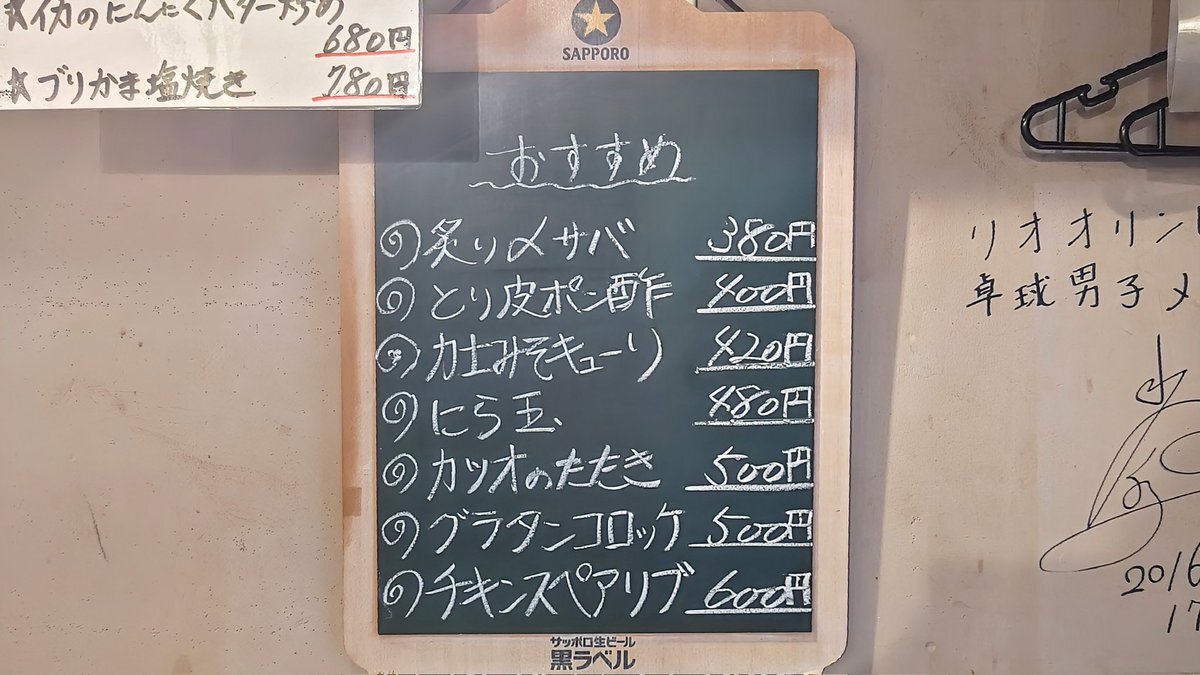 ★イカのにんにくバター炒め
680円
★ブリかま塩焼き 780円
SAPPORO
おすすめ
炙り〆サバ 380円
とり皮ポン酢 400円
力士みそキューリ 420円
にら玉 480円
カツオのたたき 500円
グラタンコロッケ 500円
チキンスペアリブ 600円
サッポロ生ビール
黒ラベル
リオオリン
卓球男子メ
2016
17